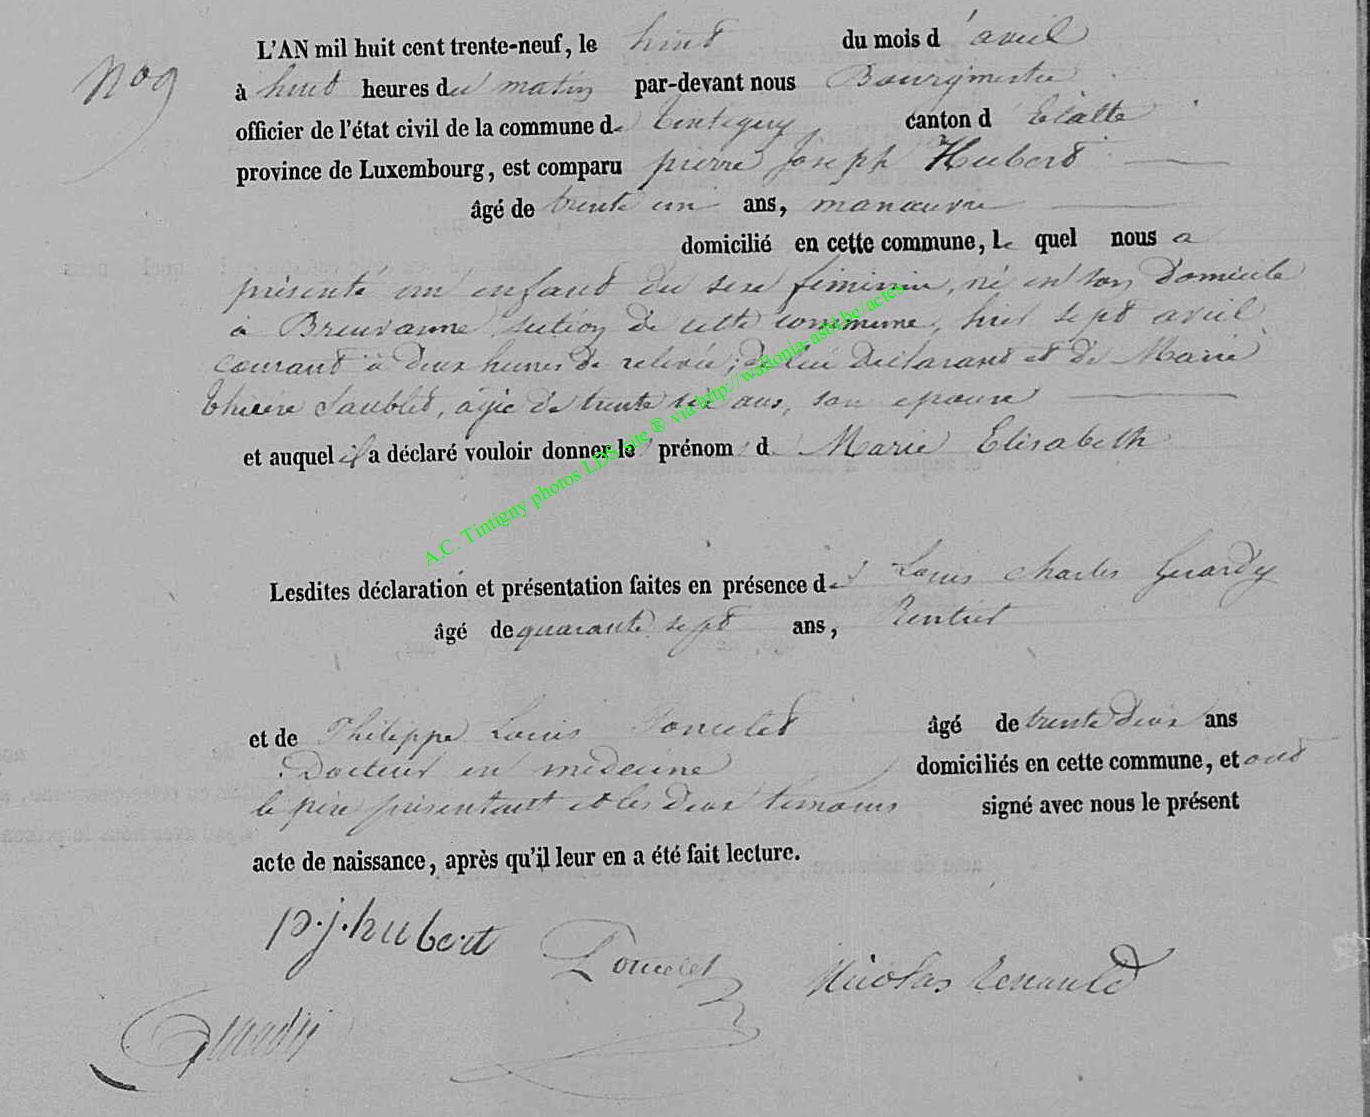 L'AN mil huit cent trente-neuf, le huit du mois d'avril
N° 9
à huit heures du matin par-devant nous Bourgmestre
officier de l'état civil de la commune de Tintigny, canton d'Etalle
province de Luxembourg, est comparu pierre joseph Hubert
âgé de trente un ans, manœuvre
domicilié en cette commune, le quel nous a
présenté un enfant du sexe féminin, né en son domicile
à Breuvanne, section de cette commune, hier sept avril
courant à deux heures de relevée, de lui déclarant et de Marie
Thérese Saublet, agée de trente six ans, son epouse
et auquel il a déclaré vouloir donner les prénoms de Marie Elisabeth
A.C. Tintigny photos LDS site ® via http://wallonia-asbl.be/actes
Lesdites déclaration et présentation faites en présence de Louis charles Gerardy
âgé de quarante sept ans, Rentier
et de Philippe Louis Poncelet âgé de trente deux ans
Docteur en médecine domiciliés en cette commune, et ont
le père présentant et les deux temoins signé avec nous le présent
acte de naissance, après qu'il leur en a été fait lecture.
p.j.hubert
Poncelet
Nicolas Renauld